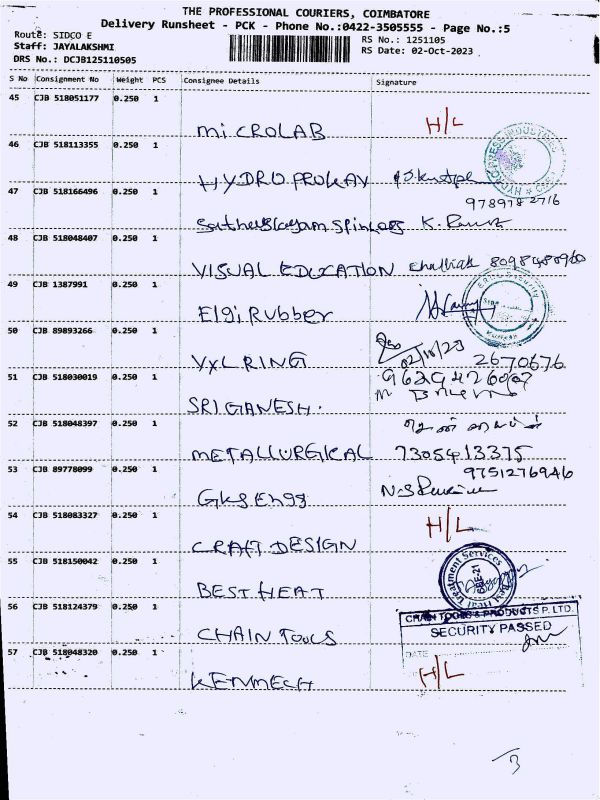 THE PROFESSIONAL COURIERS, COIMBATORE
Delivery Runsheet - PCK - Phone No.:0422-3505555 - Page No.:5
Route: SIDCO E
Staff: JAYALAKSHMI
DRS No.: DCJB125110505
RS No.: 1251105
RS Date: 02-Oct-2023
S No Consignment No Weight PCS Consignee Details Signature
45 CJB 518051177 0.250 1
MiCROLAB H/L
46 CJB 518113355 0.250 1
HYDRO PROKAV
47 CJB 518166496 0.250 1
9789782716
48 CJB 518048407 0.250 1
VISUAL EDUCATION
49 CJB 1387991 0.250 1
Elgi Rubber
50 CJB 89893266 0.250 1
02/10/23
VXL RING 2670676
51 CJB 518030019 0.250 1
SRI GANESH.
52 CJB 518048397 0.250 1
METALLURGICAL 7305413375
53 CJB 89778099 0.250 1
9751276946
GKS Engg
54 CJB 518083327 0.250 1
H/L
CRAFT DESIGN
55 CJB 518150042 0.250 1
Best Heat Treatment Services
BEST HEAT
56 CJB 518124379 0.250 1
CHAIN TOOLS & PRODUCTS P. LTD.
SECURITY PASSED
CHAIN TOOLS
DATE
57 CJB 518048320 0.250 1
H/L
KENMECH